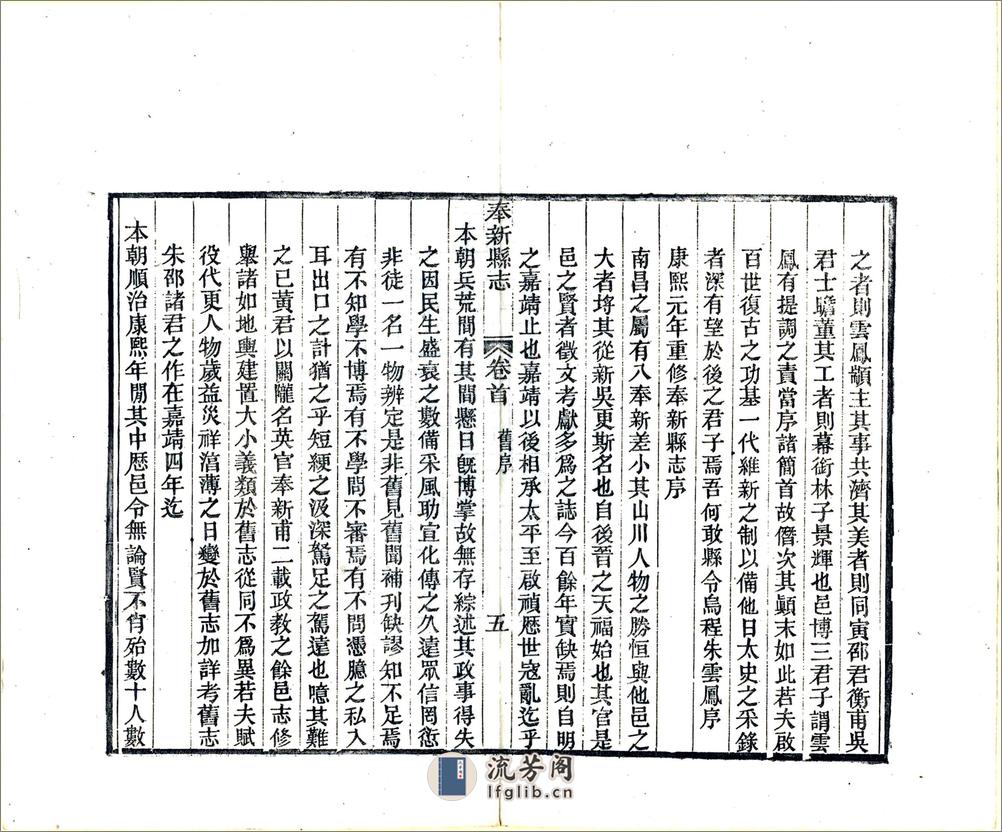 之者則雲鳳顓主其事共濟其美者則同寅邵君衡甫吳
君士瞻董其工者則幕銜林子景輝也邑博三君子謂雲
鳳有提調之責當序諸簡首故僭次其顛末如此若夫啟
百世復古之功基一代維新之制以備他日太史之采錄
者深有望於後之君子焉吾何敢縣令烏程朱雲鳳序
康熙元年重修奉新縣志序
南昌之屬有八奉新差小其山川人物之勝恒與他邑之
大者埒其從新吳更斯名也自後晉之天福始也其官是
邑之賢者徵文考獻多為之誌今百餘年實缺焉則自明
之嘉靖止也嘉靖以後相承太平至啟禎歷世寇亂迄乎
奉新縣志
卷首
舊序
五
本朝兵荒間有其間懸日旣博掌故無存綜述其政事得失
之因民生盛衰之數備采風助宣化傳之久遠眾信罔愆
非徒一名一物辨定是非舊見舊聞補刊缺謬知不足焉
有不知學不博焉有不學問不審焉有不問憑臆之私入
耳出口之計猶之乎短綆之汲深駑足之駕遠也噫其難
之已黃君以關隴名英官奉新甫二載政教之餘邑志修
舉諸如地輿建置大小義類於舊志從同不為異若夫賦
役代更人物歲益災祥滈薄之日變於舊志加詳考舊志
朱邵諸君之作在嘉靖四年迄
本朝順治康熙年間其中歷邑令無論賢不肖殆數十人數
流芳阁
lfglib.cn